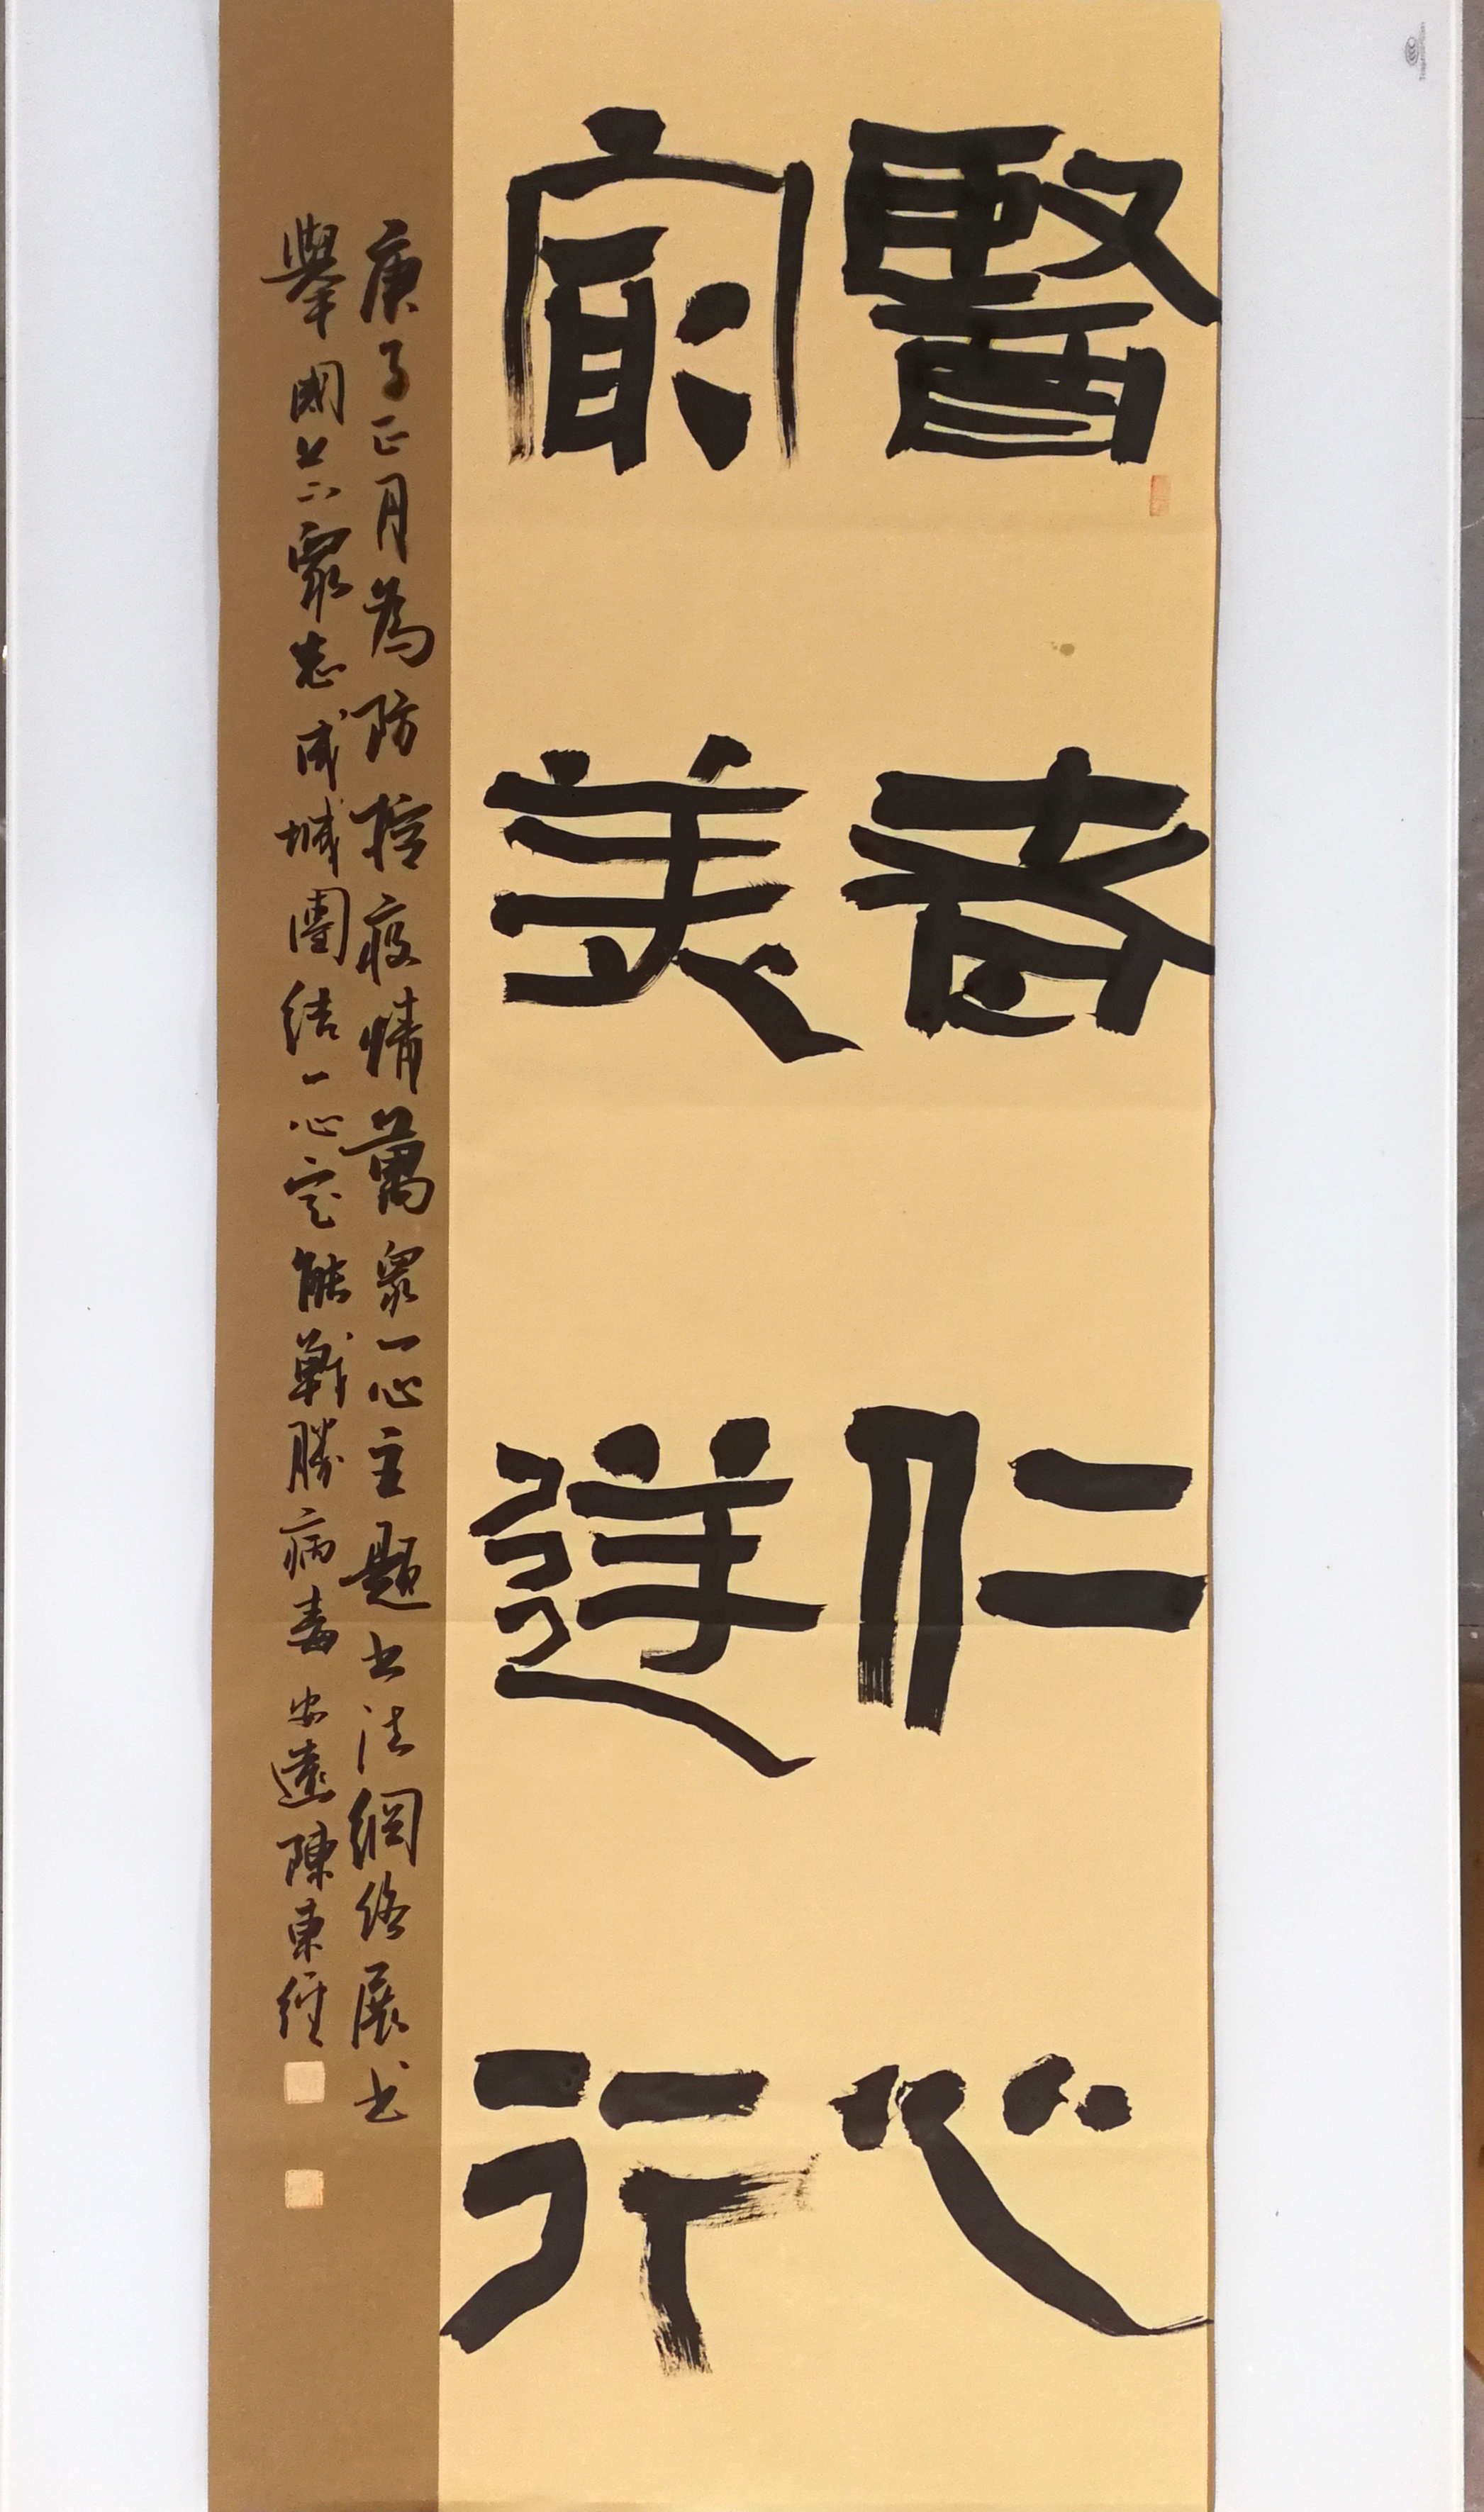 醫者仁心
最美逆行
庚子正月為防控疫情萬眾一心主題書法網絡展書
舉國上下眾志成城團結一心定能戰勝病毒 安遠陳東經